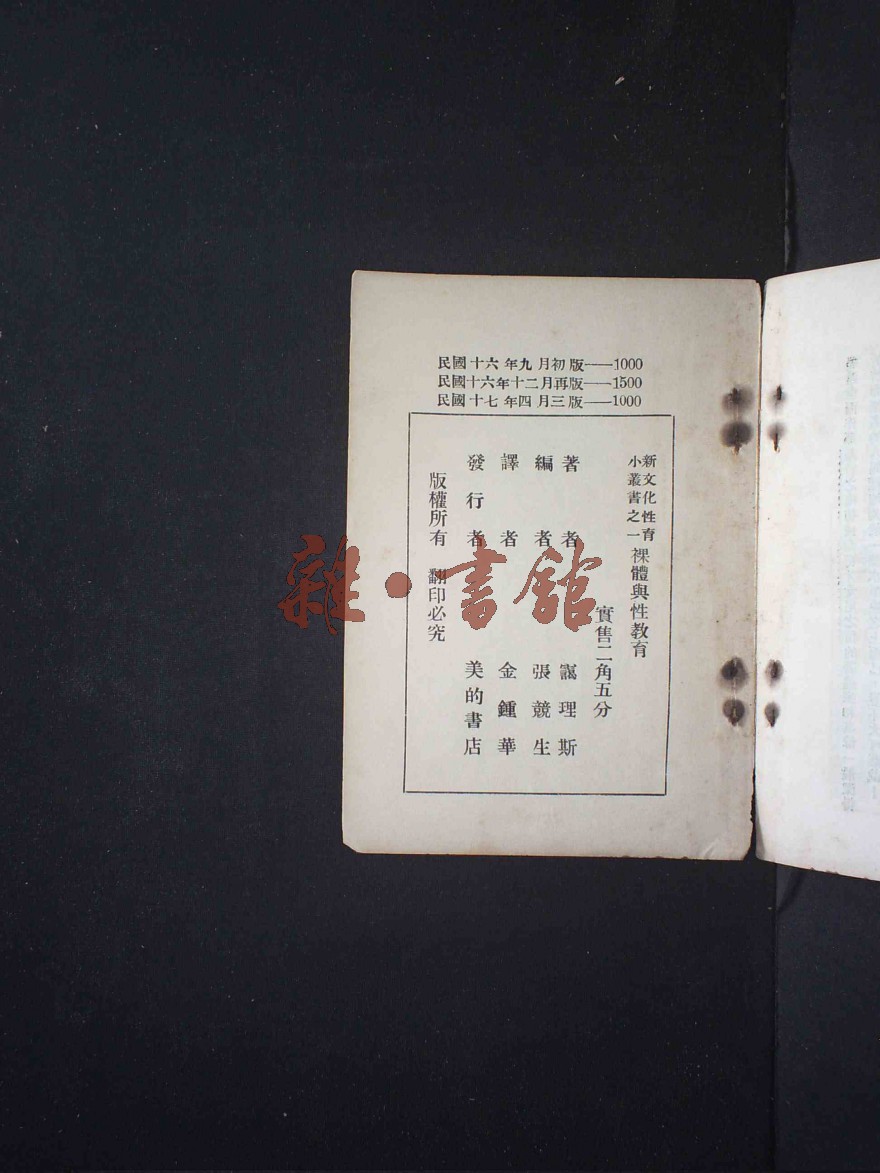 民國十六年九月初版——1000
民國十六年十二月再版——1500
民國十七年四月三版——1000
新文化性育
小叢書之一
裸體與性教育
實售二角五分
著者 靄理斯
編者 張競生
譯者 金鍾華
發行者 美的書店
版權所有 翻印必究
雜·書館